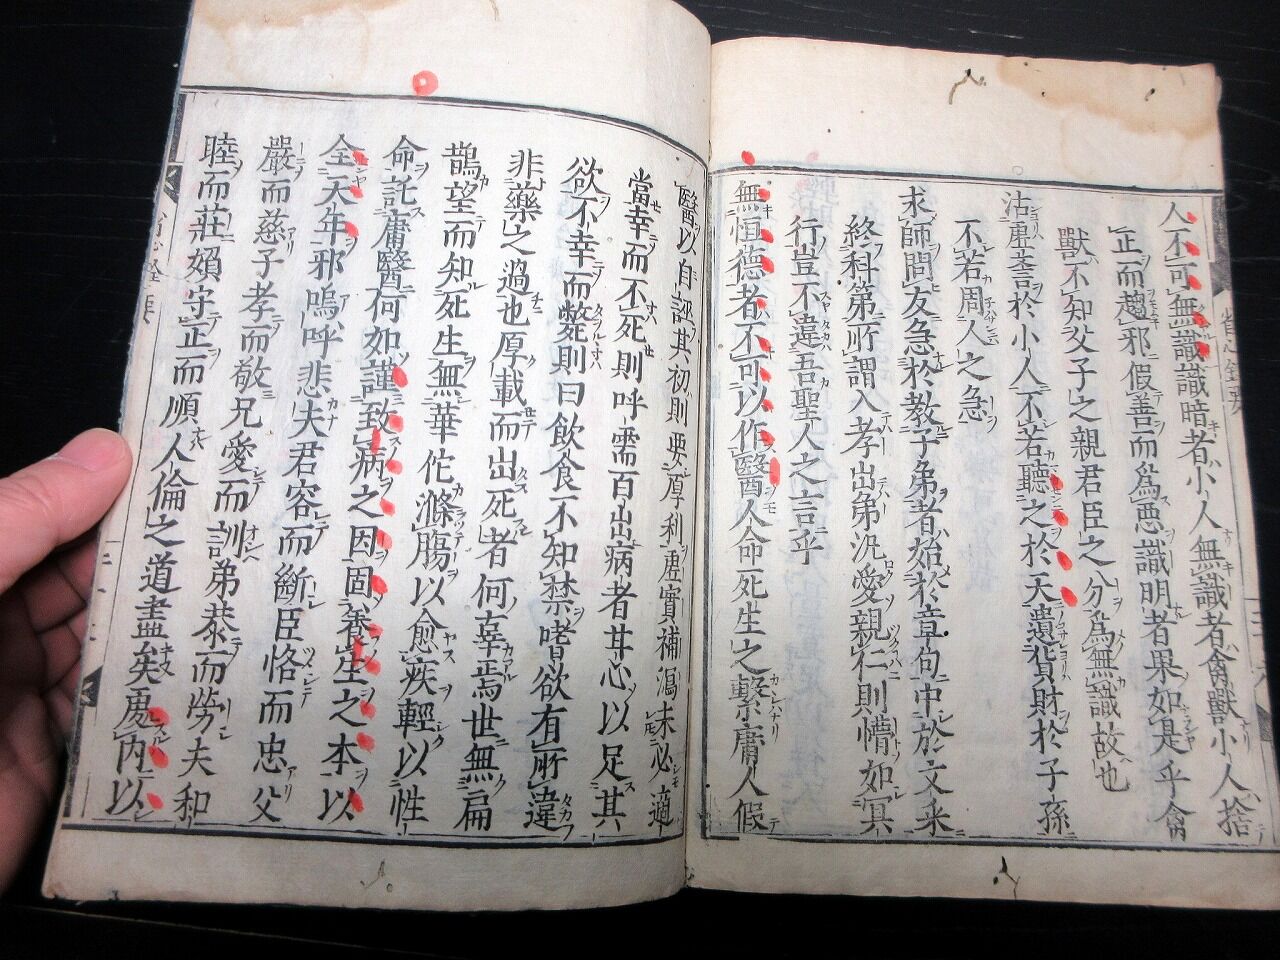 人不可無識識暗者小人無識者禽獸小人捨
正而趨邪假善而為惡識明者果如是乎禽
獸不知父子之親君臣之分為無識故也
沽虛譽於小人不若聽之於天遺貨財於子孫
不若周人之急
求師問友急於教子弟者始於章句中於文采
終科第所謂入孝出弟汎愛親仁則懵如冥
行豈不違吾聖人之言乎
無恒德者不可以作醫人命死生之繫庸人假
醫以自誣其初則要厚利虛實補瀉未必適
當幸而不死則呼需百出病者甘心以足其
欲不幸而斃則曰飲食不知禁嗜欲有所違
非藥之過也厚載而出死者何辜焉世無扁
鵲望而知死生無華佗滌腸以愈疾輕以性
命託庸醫何如謹致病之因固養生之本以
全天年邪嗚呼悲夫君容而斷臣恪而忠父
嚴而慈子孝而敬兄愛而訓弟恭而勞夫和
睦而莊婦守正而順人倫之道盡矣處內以